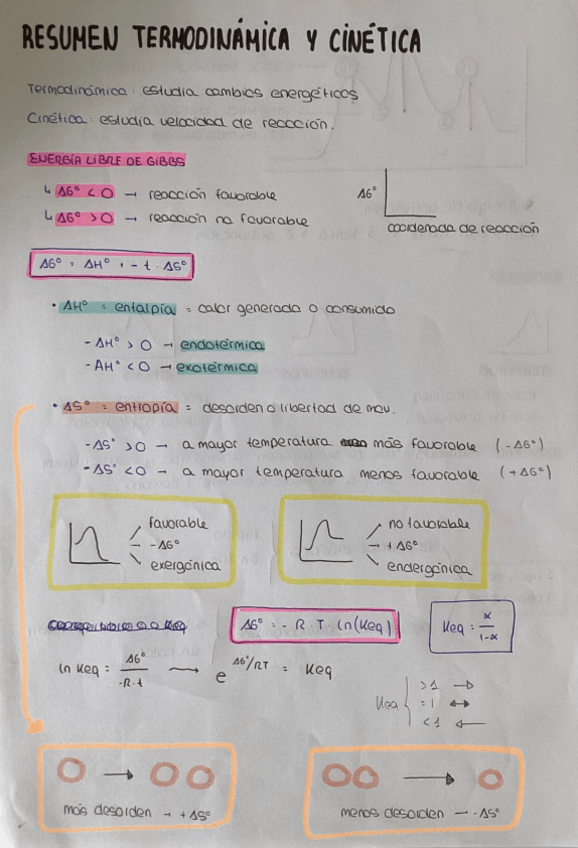 RESUMEN TERMODINÁMICA Y CINÉTICA
Termodinámica: estudia cambios energéticos
Cinética: estudia velocidad de reacción.
ENERGÍA LIBRE DE GIBBS
↳ ΔG° < 0 → reacción favorable
↳ ΔG° > 0 → reacción no favorable
ΔG°
coordenada de reacción
ΔG° = ΔH° + - t · ΔS°
• ΔH° = entalpía = calor generado o consumido
- ΔH° > 0 → endotérmica
- ΔH° < 0 → exotérmica
• ΔS° = entropía = desorden o libertad de mov.
- ΔS° > 0 → a mayor temperatura más favorable (-ΔG°)
- ΔS° < 0 → a mayor temperatura menos favorable (+ΔG°)
favorable
-ΔG°
exergónica
no favorable
+ΔG°
endergónica
ΔG° = - R · T · ln(Keq)
Keq = α/1-α
ln Keq = ΔG°/-R·t → e^ΔG°/RT = Keq
Keq
>1 →
=1 ↔
<1 ←
más desorden → +ΔS°
menos desorden → -ΔS°